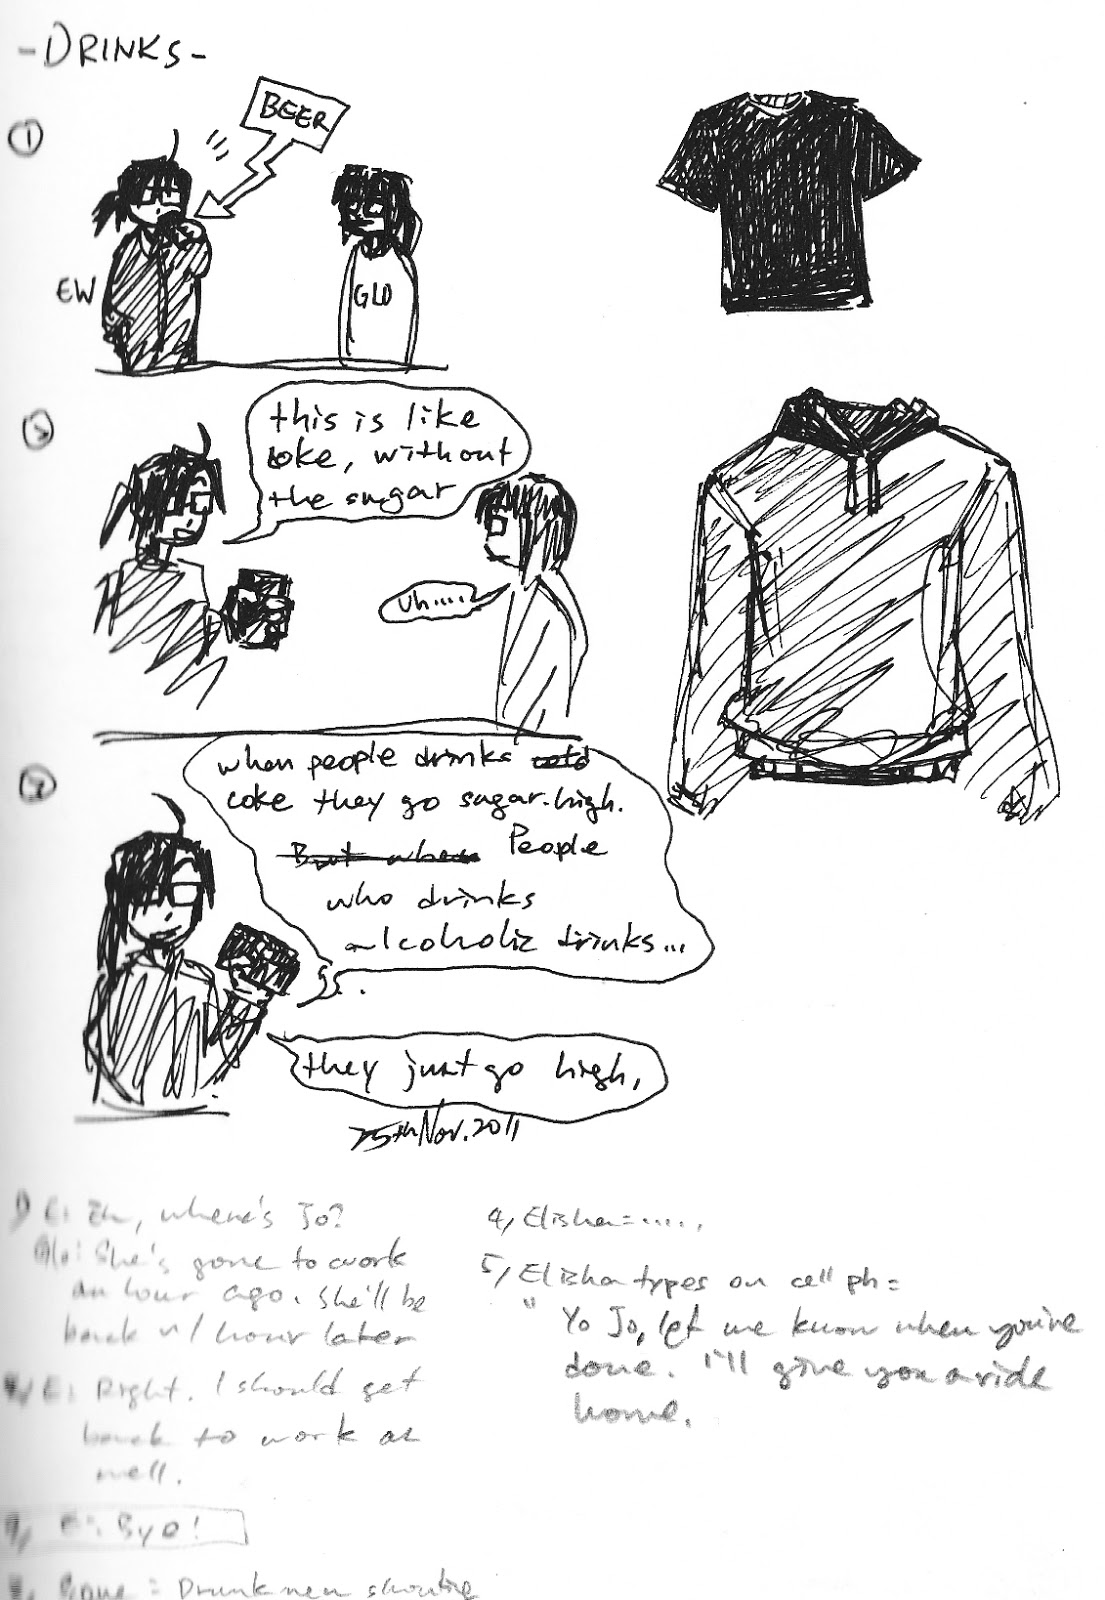 -DRINKS-
1
BEER
EW
GLO
3
this is like
coke, without
the sugar
uh.....
4
when people drinks
coke they go sugar-high.
But when People
who drinks
alcoholic drinks...
they just go high,
25th Nov. 2011
1) E: Eh, where's Jo?
Glo: She's gone to work
an hour ago. She'll be
back w/ hour later
E: Right. I should get
back to work as
well.
E: Bye!
= Drunken shouting
4, Elisha = .....,
5, Elisha types on cell ph =
" Yo Jo, let me know when you're
done. I'll give you a ride
home.